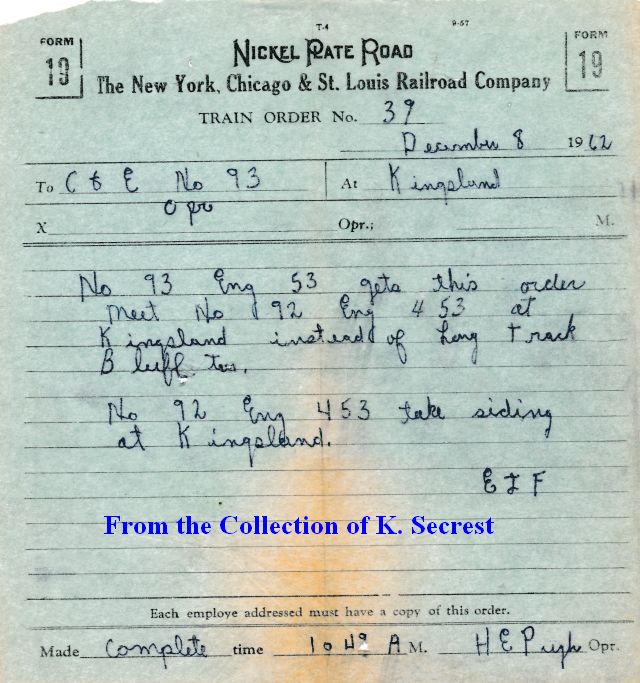 T-4 9-57
FORM 19 FORM 19
NICKEL PLATE ROAD
The New York, Chicago & St. Louis Railroad Company
TRAIN ORDER No. 39
December 8 1962
To C & E No 93 At Kingsland
Opr
X Opr.; M.
No 93 Eng 53 gets this order
Meet No 92 Eng 453 at
Kingsland instead of Long Track
Bluffton.
No 92 Eng 453 take siding
at Kingsland.
From the Collection of K. Secrest
Each employe addressed must have a copy of this order.
Made Complete time 1049 A M. H E Pugh Opr.